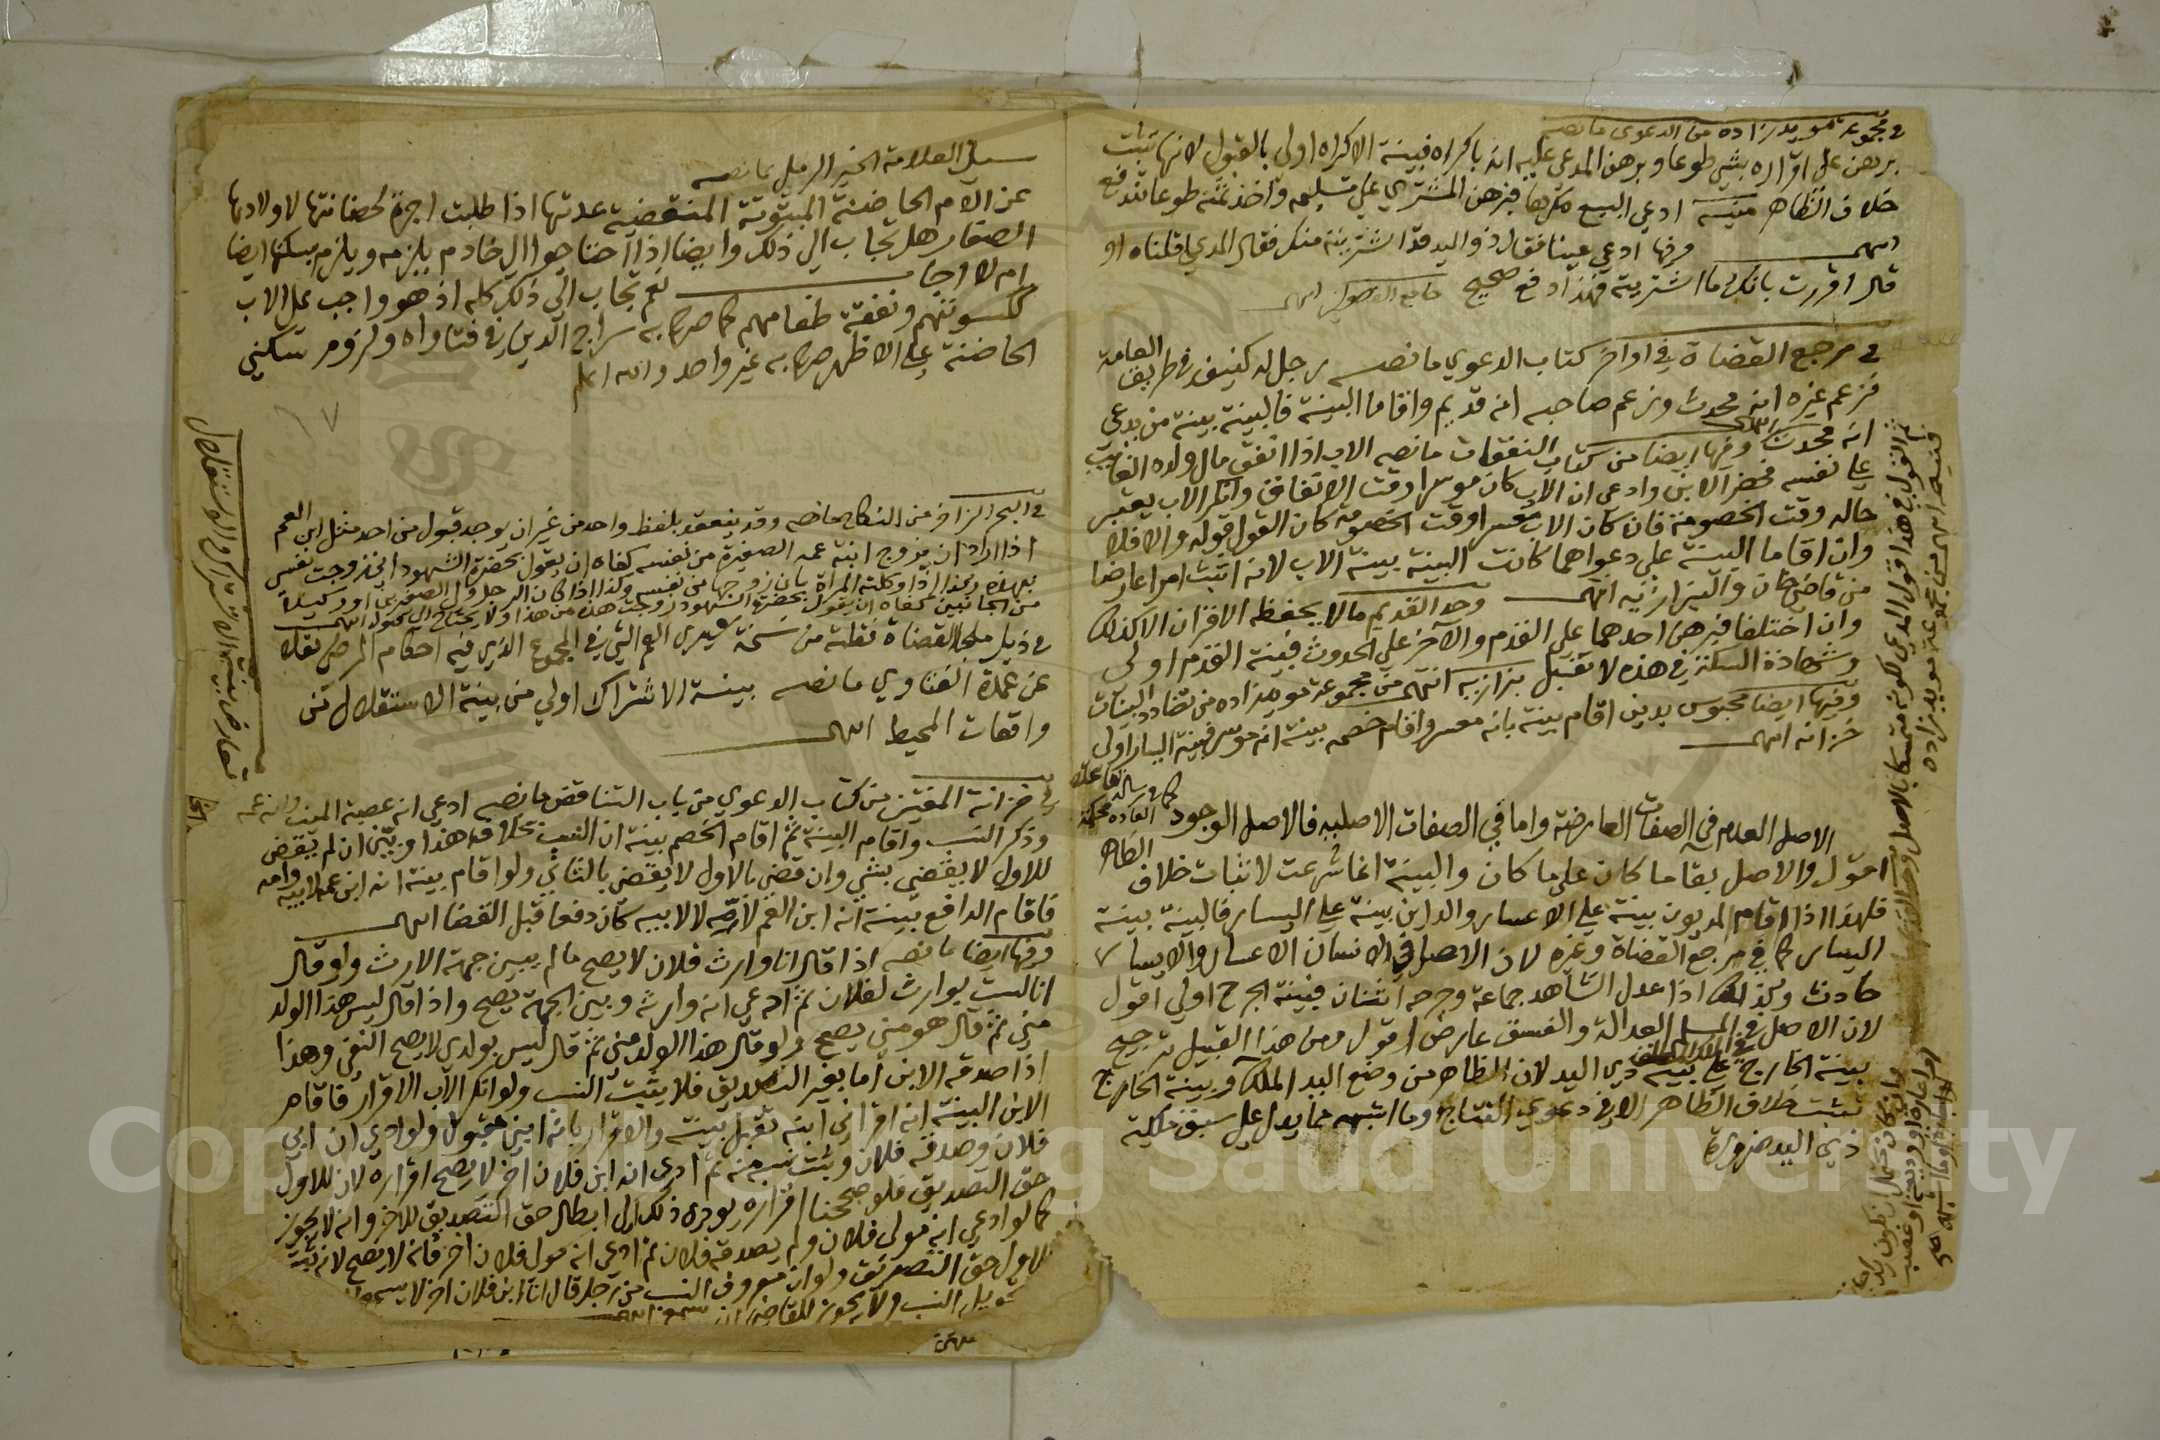 في مجموعة مويد زاده من الدعوى ما نصه
برهن على اقراره بشي طوعا وبرهن المدعى عليه انه باكراه فبينة الاكراه اولى بالقبول لانها تثبت
خلاف الظاهر ادعى البيع مكرها فبرهن المشتري على تسليمه واخذ ثمنه طوعا تندفع
انتهى وفيها ادعى عينا فقال ذو اليد قد اشتريته منك فقال المدعي اقلناه او
قال اقررت بانك ما اشتريته فهذا دفع صحيح جامع الفصولين انتهى
في مرجع القضاة في اواخر كتاب الدعوي ما نصه رجل له كنيف في طريق العامة
فزعم غيره انه محدث وزعم صاحبه انه قديم واقاما البينة فالبينة بينة من يدعي
انه محدث انتهى وفيها ايضا من كتاب النفقات ما نصه الاب اذا انفق مال ولده الغايب
على نفسه فحضر الابن وادعى ان الاب كان موسرا وقت الانفاق وانكر الاب يعتبر
حاله وقت الخصومة فان كان الاب معسرا وقت الخصومة كان القول قوله والا فلا
وان اقاما البينة على دعواهما كانت البينة بينة الاب لانه اثبت امرا عارضا
من قاضي خان والبزازية انتهى وحد القديم ما لا يحفظه الاقران الا كذلك
وان اختلفا فبرهن احدهما على القدم والآخر على الحدوث فبينة القدم اولى
وشهادة السكنة في هذه لا تقبل بزازيه انتهى من مجموعة مويد زاده من تضاد البينات
وفيها ايضا محبوس بدين اقام بينة بانه معسر واقام خصمه بينة انه موسر فبينة اليسار اولى
خزانه انتهى
الاصل العدم في الصفات العارضة واما في الصفات الاصلية فالاصل الوجود كما في رسالة العادة محكمة
اقول والاصل بقا ما كان على ما كان والبينة انما شرعت لاثبات خلاف الظاهر
فلهذا اذا اقام المديون بينة على الاعسار والداين بينة على اليسار فالبينة بينة
اليسار كما في مرجع القضاة وغيره لان الاصل في الانسان الاعسار والايسار
حادث وكذلك اذا عدل الشاهد جماعة وجرحه اثنان فبينة الجرح اولى اقول
لان الاصل في المسلم العدالة والفسق عارض اقول ومن هذا القبيل ترجيح
بينة الخارج على بينة ذي اليد لان الظاهر من وضع اليد الملك وبينة الخارج
تثبت خلاف الظاهر الا في دعوي النتاج وما اشبهه مما يدل على سبق ملكية
ذي اليد ضرورة
سيل العلامة الخير الرملي بما نصه
عن الام الحاضنة المبتوتة المنقضية عدتها اذا طلبت اجرة لحضانتها لاولادها
الصغار هل تجاب الى ذلك وايضا اذا احتاجوا الى خادم يلزمه ويلزم بسكنها ايضا
ام لا اجاب نعم تجاب الى ذلك كله اذ هو واجب على الاب
ككسوتهم ونفقة طعامهم كما صرح به سراج الدين في فتاواه ولزوم سكني
الحاضنة على الاظهر صرح به غير واحد والله اعلم
في البحر الزاخر من النكاح ما نصه وقد ينعقد بلفظ واحد من غير ان يوجد قبول من احد مثل ابن العم
اذا اراد ان يزوج ابنة عمه الصغيرة من نفسه كفاه ان يقول بحضرة الشهود اني زوجت نفسي
بهذه وكذا اذا وكلته المراة بان زوجها من نفسه وكذا اذا كان الرجل ولي الصغيرين او وكيلا
من الجانبين كفاه ان يقول بحضرة الشهود زوجت هذه من هذا ولا يحتاج الى قبول انتهى
في ذيل ملجا القضاة نقلته من نسخة سيدي العم التي في المجموع الذي فيه احكام المرضى نقلا
عن عمدة الفتاوي ما نصه بينة الاشتراك اولي من بينة الاستقلال من
واقعات المحيط انتهى
تعارض بينة الاشتراك والاستقلال
في خزانة المفتين من كتاب الدعوي من باب التناقض ما نصه ادعى انه عصبة الميت وابن عمه
وذكر النسب واقام البينة ثم اقام الخصم بينة ان النسب بخلاف هذا وبين ان لم يقض
للاول لا يقضي بشي وان قضى بالاول لا يقضي بالثاني ولو اقام بينة انه ابن عمه لابيه وامه
فاقام الدافع بينة انه ابن العم لامه لا لابيه كان دفعا قبل القضا انتهى
وفيها ايضا ما نصه اذا قال انا وارث فلان لا يصح ما لم يبين جهة الارث ولو قال
انا لست بوارث لفلان ثم ادعى انه وارثه وبين الجهة يصح واذا قال ليس هذا الولد
مني ثم قال هو مني يصح ولو قال هذا الولد مني ثم قال ليس بولدي لا يصح النفي وهذا
اذا صدقه الابن اما بغير التصديق فلا يثبت النسب ولو انكر الاب الاقرار فاقام
الابن البينة انه اقر اني ابنه تقبل بينته والاقرار بانه ابني مقبول ولو ادعى ان ابي
فلان وصدقه فلان وثبت نسبه منه ثم ادعى انه ابن فلان اخر لا يصح اقراره لان للاول
حق التصديق فلو صححنا اقراره يودي ذلك الى ابطال حق التصديق للاخر وانه لا يجوز
كما لو ادعى انه مولى فلان ولم يصدقه فلان ثم ادعى انه مولى فلان اخر فانه لا يصح لانه
للاول حق التصديق ولو ان معروف النسب من رجل قال انا ابن فلان اخر لا يسمع
تحويل النسب ولا يجوز للقاضي ان يسمع انتهى
Copyright © King Saud University